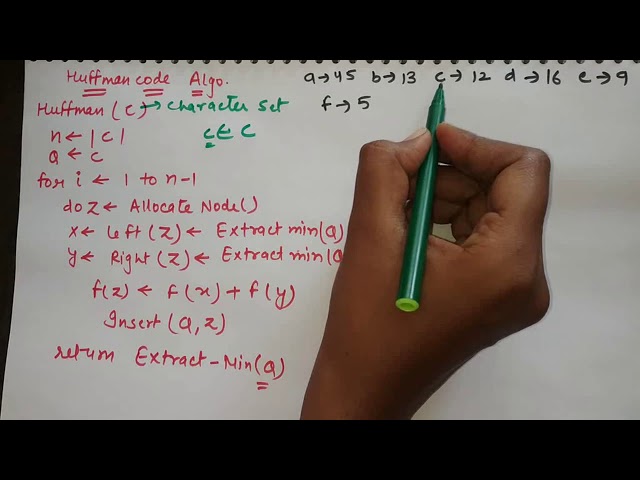 Huffman code Algo.
a→45 b→13 c→12 d→16 e→9
f→5
Huffman (c)→ character set
c ∈ C
n ← |c|
Q ← c
for i ← 1 to n-1
do z ← Allocate Node()
x ← left (z) ← Extract min(Q)
y ← Right (z) ← Extract min(Q
f(z) ← f(x) + f(y)
Insert (Q, z)
return Extract-Min(Q)